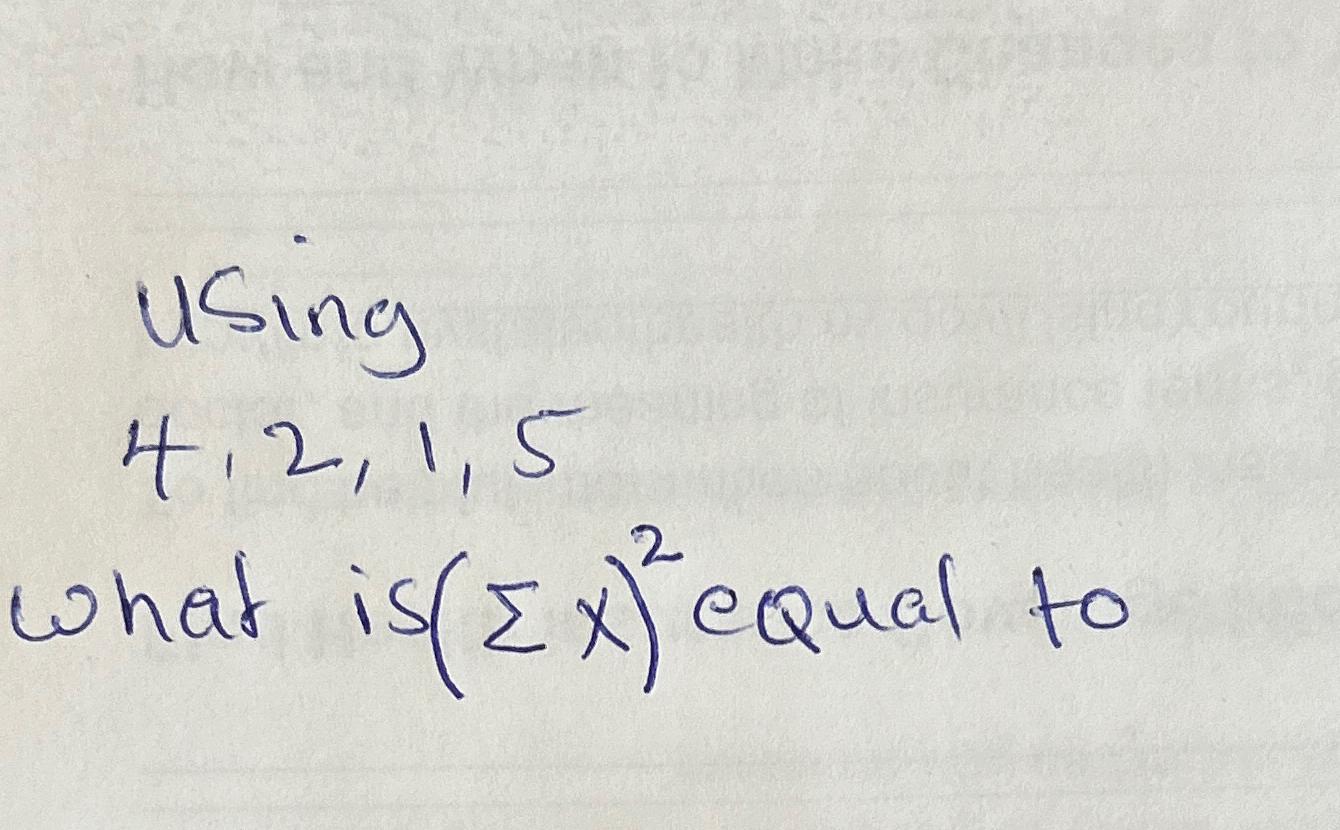 using
4, 2, 1, 5
what is (Σx)² equal to